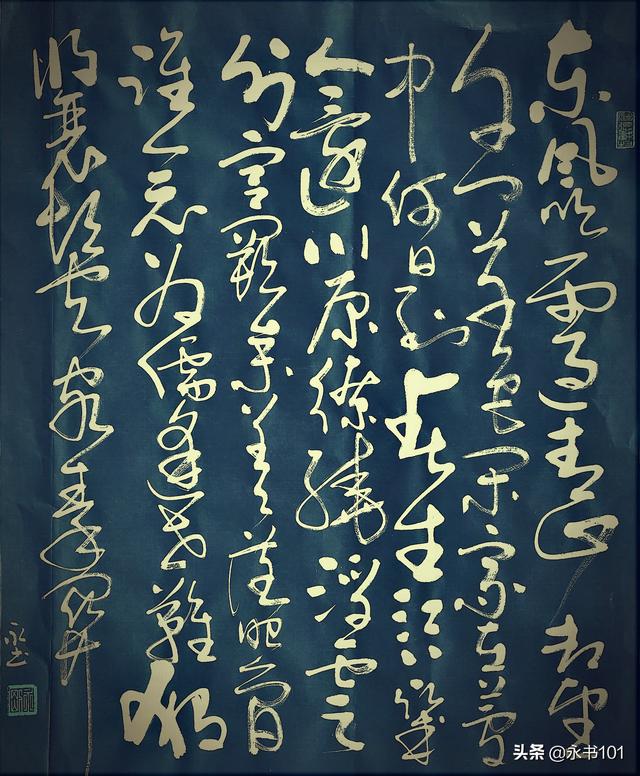 东風吹雨过青山却望
千门草色闲家在梦
中何日到春来江上几
人还川原缭绕浮云
外宫阙参差落照间
谁念为儒逢世难独
将衰鬓客秦关
头条 @永书101